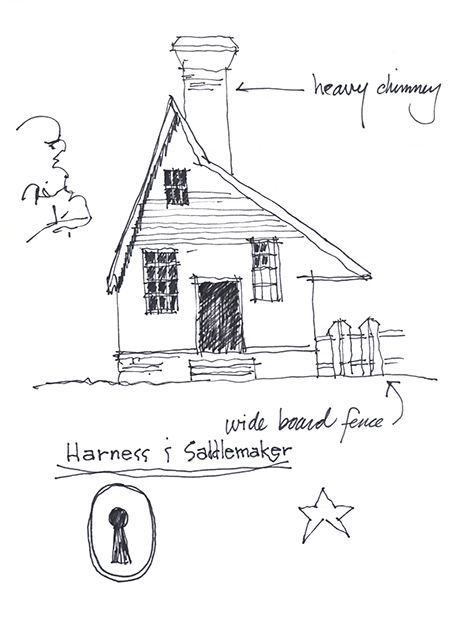 heavy chimney
wide board fence
Harness & Saddlemaker